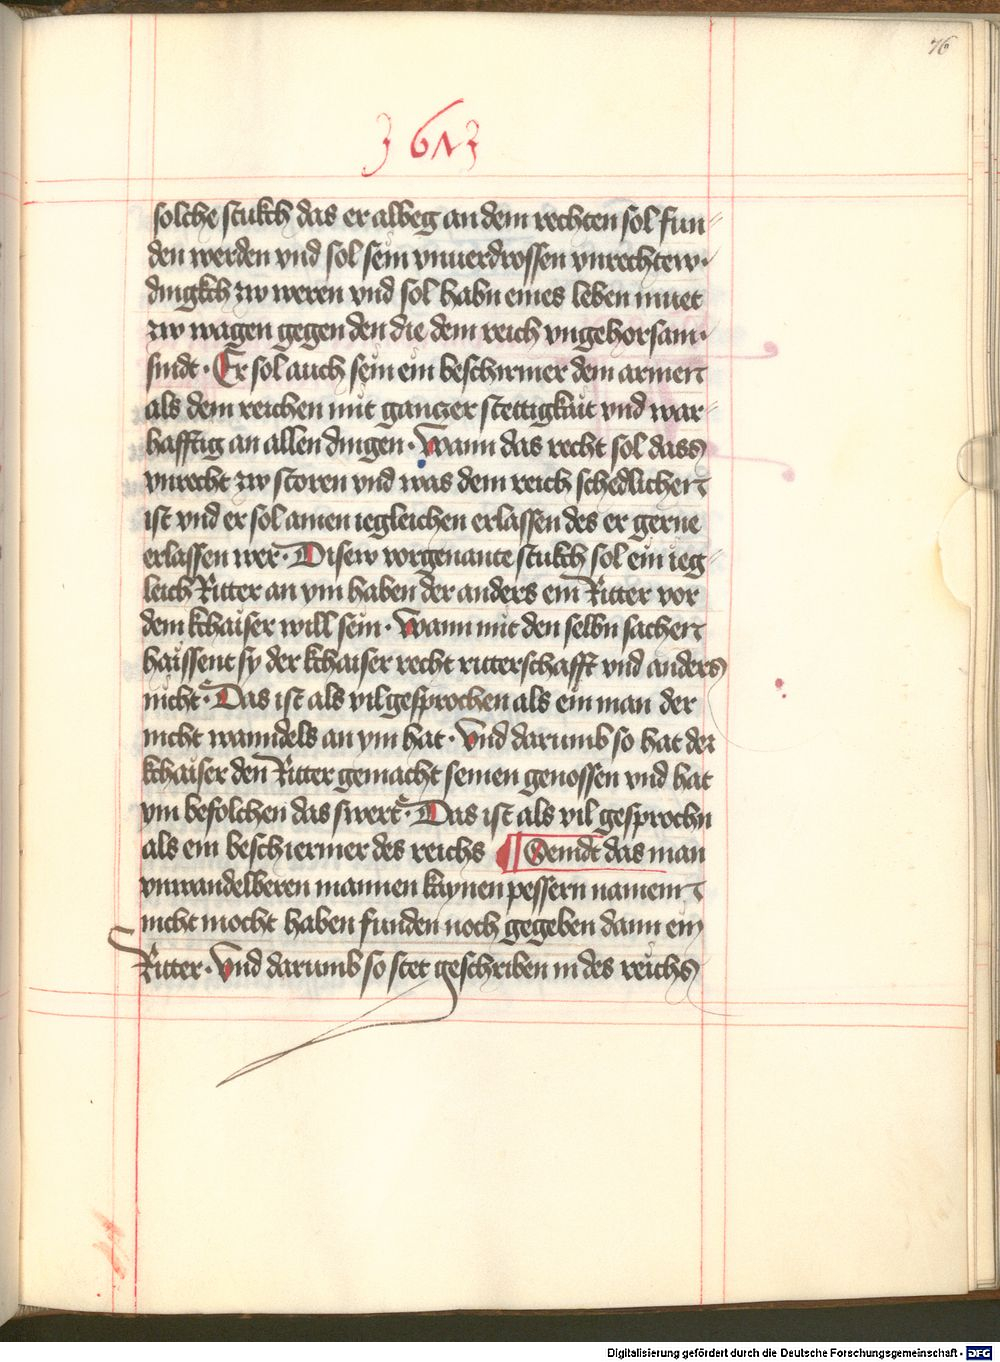 76
3 613
solche stukch das er albeg an dem rechten sol fun⸗
den werden vnd sol sein vnuerdrossen vnrechtew·
dingkch zw weren vnd sol habn eines leben muet
zw wagen gegen den die dem reich vngehorsam·
sindt · Er sol auch sein ein beschirmer dem armen
als dem reichen mit ganczer stettigkait vnd war⸗
hafftig an allen dingen · Wann das recht sol dass
vnrecht zw storen vnd was dem reich schedlichen
ist vnd er sol ainen iegleichen erlassen des er gerne
erlassen wer · Disew vorgenante stukch sol ein ieg⸗
leich Ritter an ym haben der anders ein Ritter vor
dem kchaiser will sein · Wann mit den selbn sachen
haissent sy der kchaiser recht ritterschafft vnd anders
nicht · Das ist als vil gesprochen als ein man der
nicht wanndels an ym hat · Vnd darumb so hat der
kchaiser den Ritter gemacht seinen genossen vnd hat
ym befolchen das swert · Das ist als vil gesprochn
als ein beschiermer des reichs Seindt das man
vnwandelberen mannen kaynen pessern namen
nicht mocht haben funden noch gegeben dann ein
Ritter · Vnd darumb so stet geschriben in des reichs
Digitalisierung gefördert durch die Deutsche Forschungsgemeinschaft - DFG